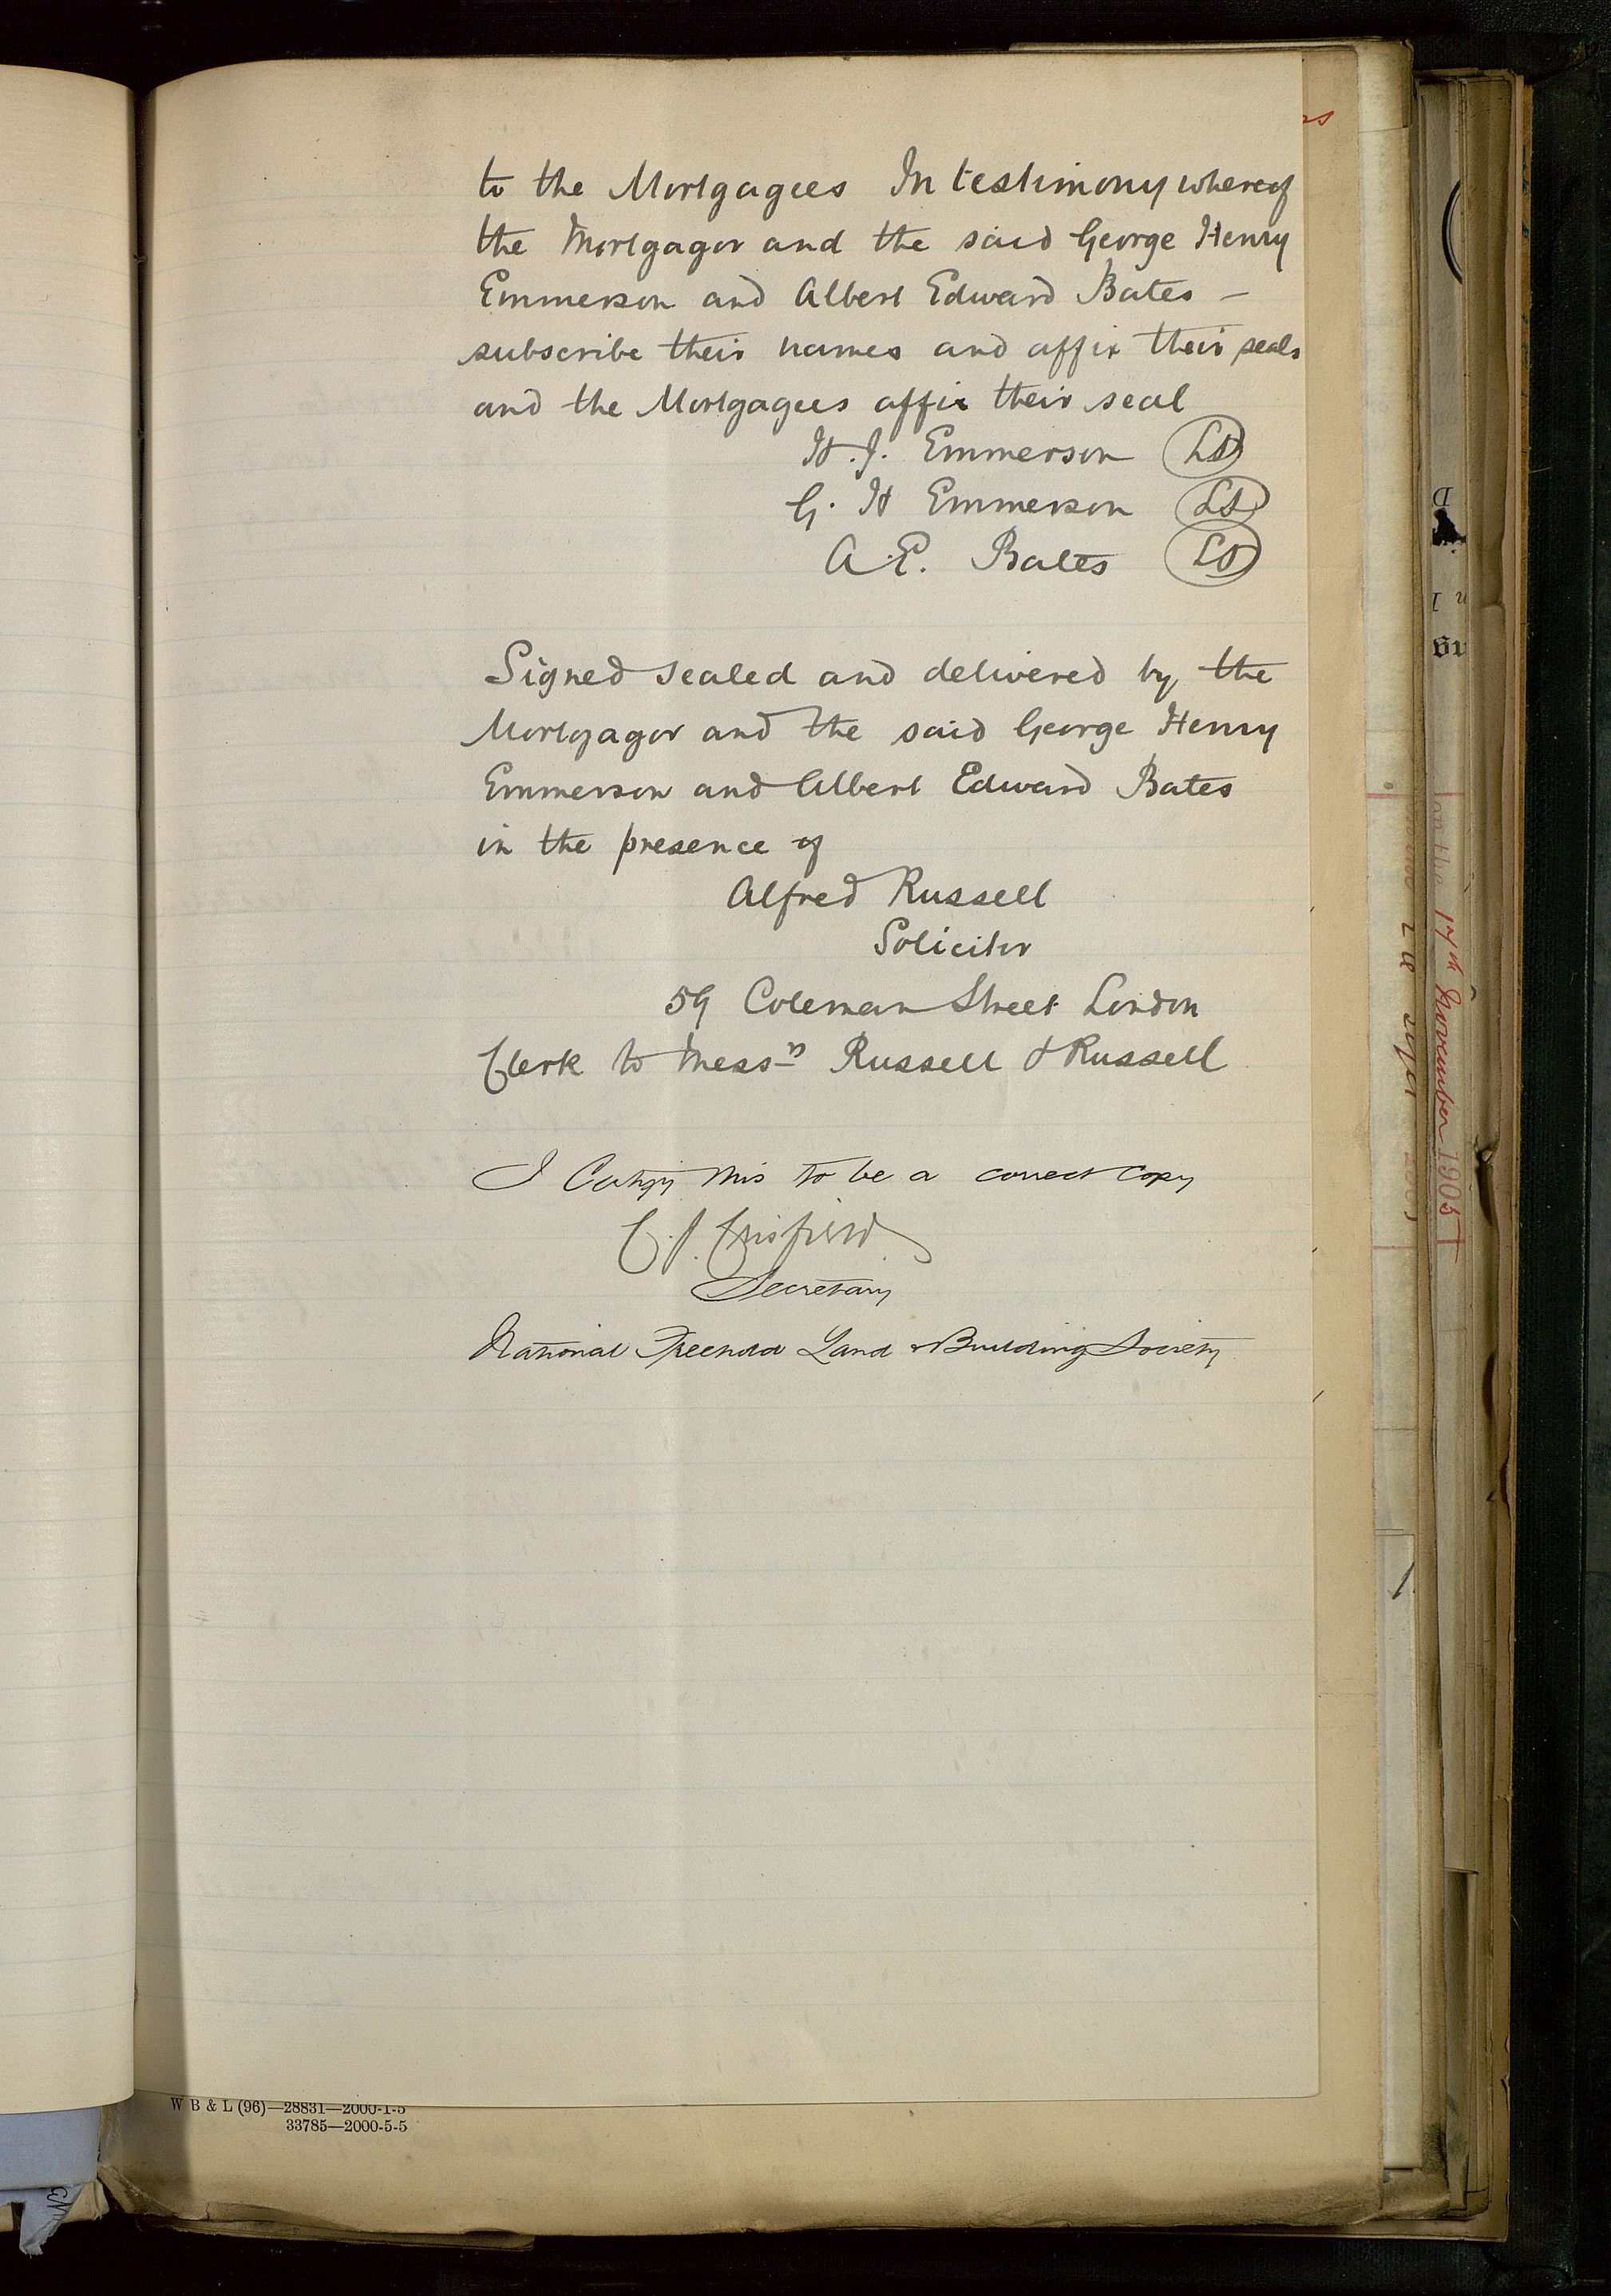 to the Mortgagees In testimony whereof
the Mortgagor and the said George Henry
Emmerson and Albert Edward Bates —
subscribe their names and affix their seals
and the Mortgagees affix their seal
H. J. Emmerson LS
G. H Emmerson LS
A. E. Bates LS
Signed sealed and delivered by the
Mortgagor and the said George Henry
Emmerson and Albert Edward Bates
in the presence of
Alfred Russell
Solicitor
59 Coleman Street London
Clerk to Messrs Russell & Russell
I Certify this to be a correct copy
C. J.
Secretary
National Freehold Land & Building Society
W B & L (96)—28831—2000-1-5
33785—2000-5-5
on the 17th November 1905